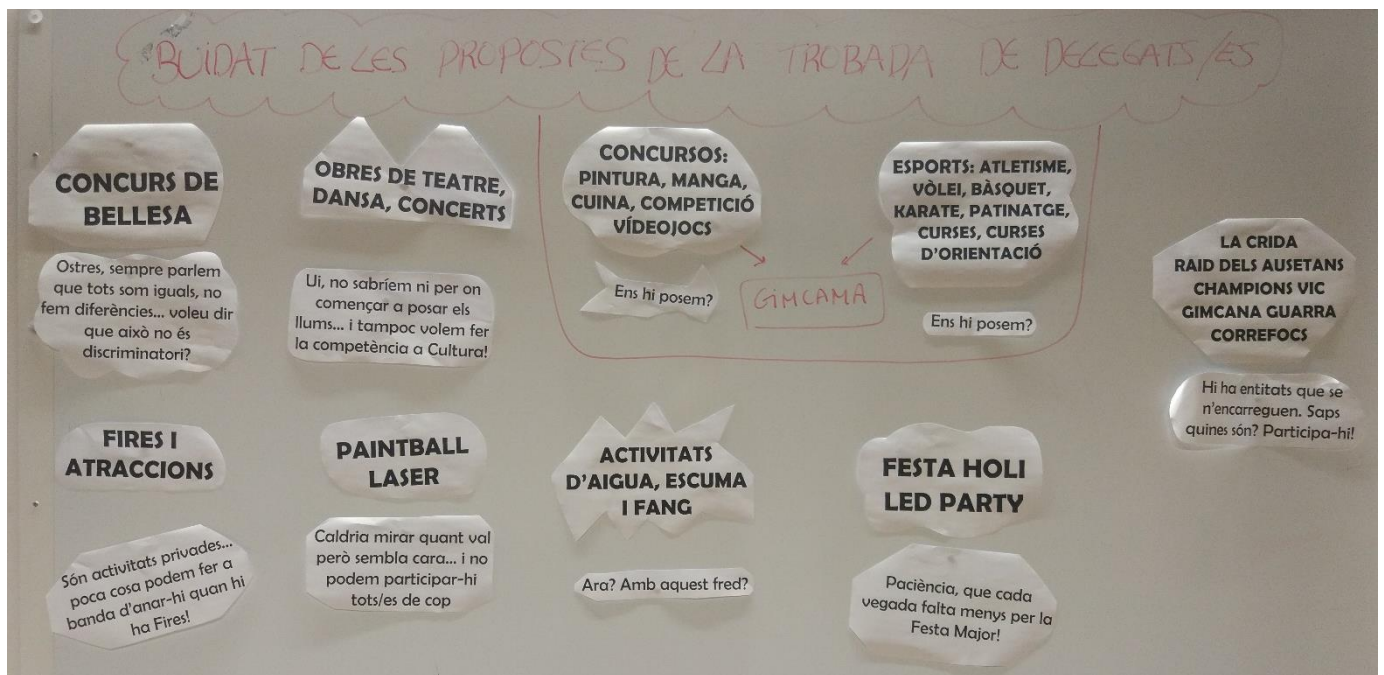 BUIDAT DE LES PROPOSTES DE LA TROBADA DE DELEGATS/ES
CONCURS DE
BELLESA
Ostres, sempre parlem
que tots som iguals, no
fem diferències... voleu dir
que això no és
discriminatori?
OBRES DE TEATRE,
DANSA, CONCERTS
Ui, no sabríem ni per on
començar a posar els
llums... i tampoc volem fer
la competència a Cultura!
CONCURSOS:
PINTURA, MANGA,
CUINA, COMPETICIÓ
VÍDEOJOCS
Ens hi posem?
GIMCAMA
ESPORTS: ATLETISME,
VÒLEI, BÀSQUET,
KARATE, PATINATGE,
CURSES, CURSES
D'ORIENTACIÓ
Ens hi posem?
LA CRIDA
RAID DELS AUSETANS
CHAMPIONS VIC
GIMCANA GUARRA
CORREFOCS
Hi ha entitats que se
n'encarreguen. Saps
quines són? Participa-hi!
FIRES I
ATRACCIONS
Són activitats privades...
poca cosa podem fer a
banda d'anar-hi quan hi
ha Fires!
PAINTBALL
LASER
Caldria mirar quant val
però sembla cara... i no
podem participar-hi
tots/es de cop
ACTIVITATS
D'AIGUA, ESCUMA
I FANG
Ara? Amb aquest fred?
FESTA HOLI
LED PARTY
Paciència, que cada
vegada falta menys per la
Festa Major!